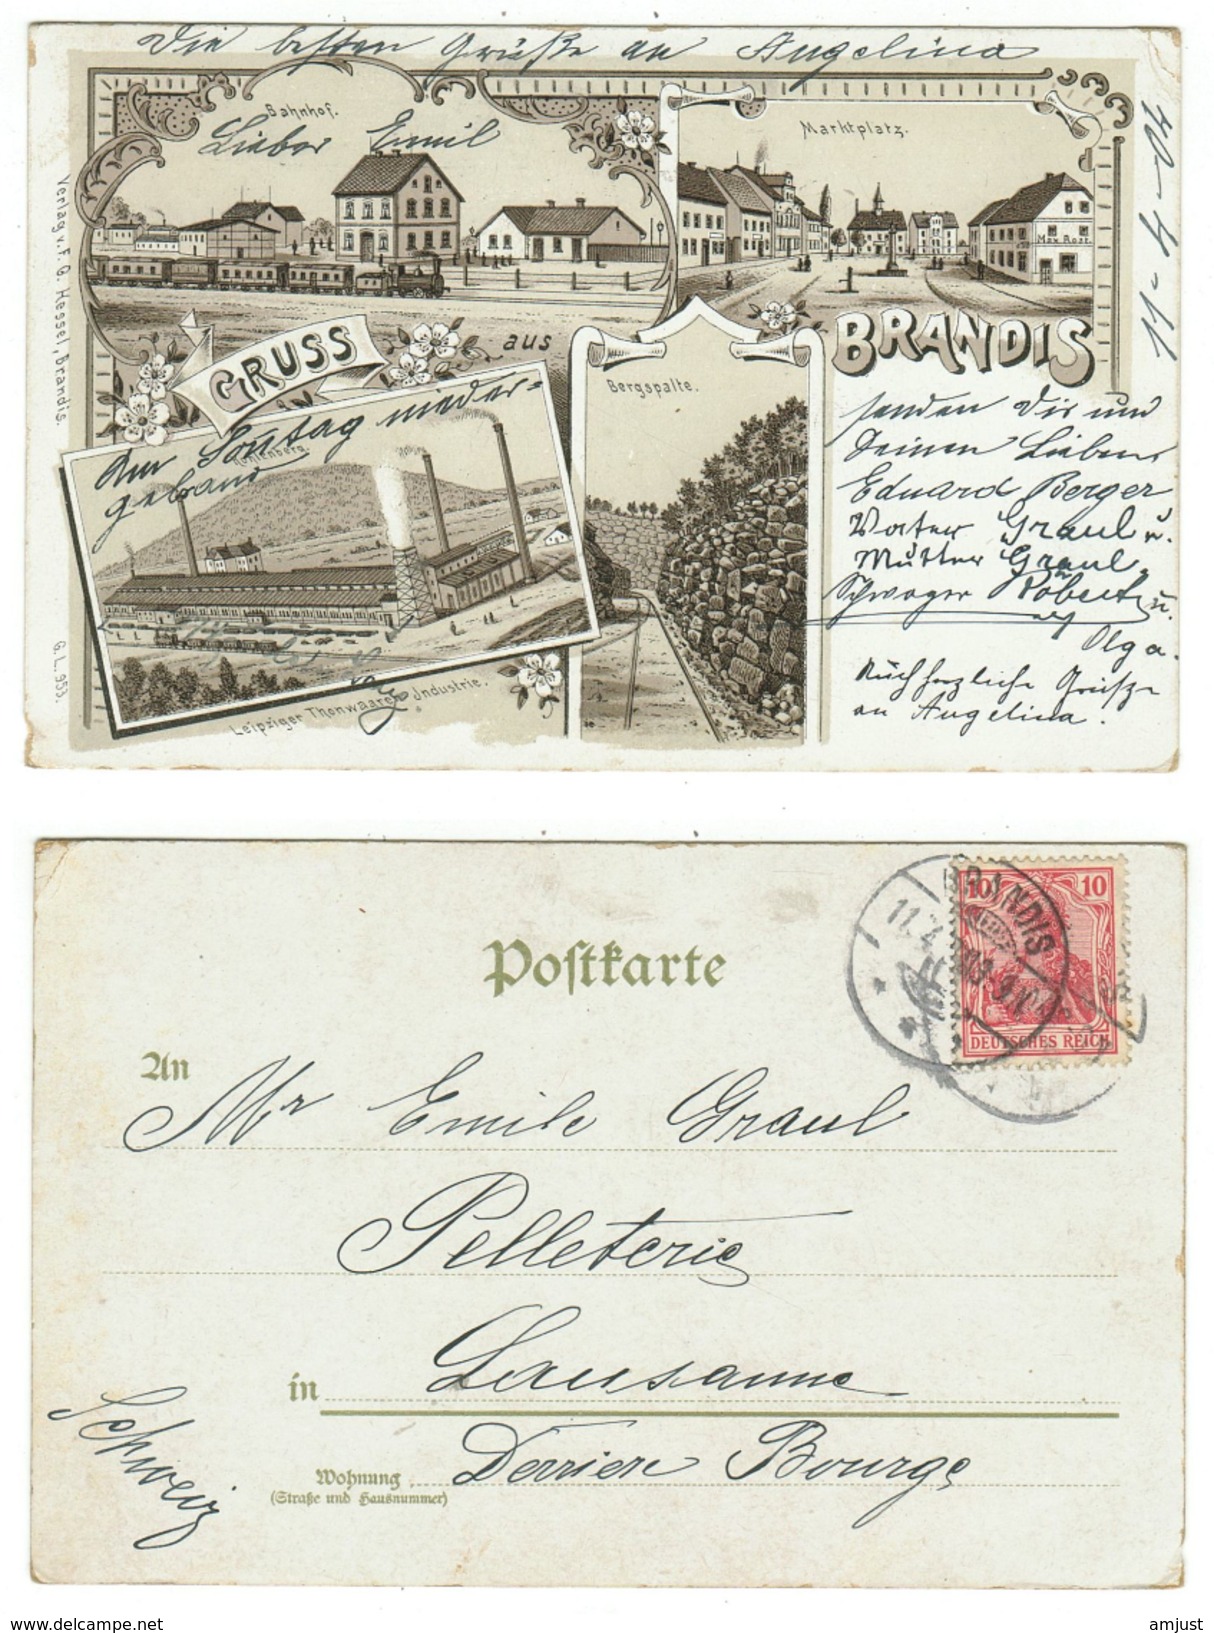 Die besten Grüße an Angelina
Bahnhof.
Lieber Emil
Marktplatz.
Max Rost.
11-4-04
Verlag v. F. G. Hessel, Brandis.
GRUSS
aus
BRANDIS
Bergspalte.
Am Sontag nieder=
gebrand
Kohlenberg.
senden Dir und
Deinen Lieben
Eduard Berger
Vater Graul u.
Mutter Graul
Schwager Robert u.
Olga.
Auch herzliche Grüße
an Angelina.
Leipziger Thonwaaren Industrie.
G. L. 953.
Postkarte
10 10
BRANDIS
11.4.
DEUTSCHES REICH
An
Mr Emile Graul
Pelleterie
in Lausanne
Schweiz
Wohnung Derriere Bourge
(Straße und Hausnummer)
delcampe.net
amjust